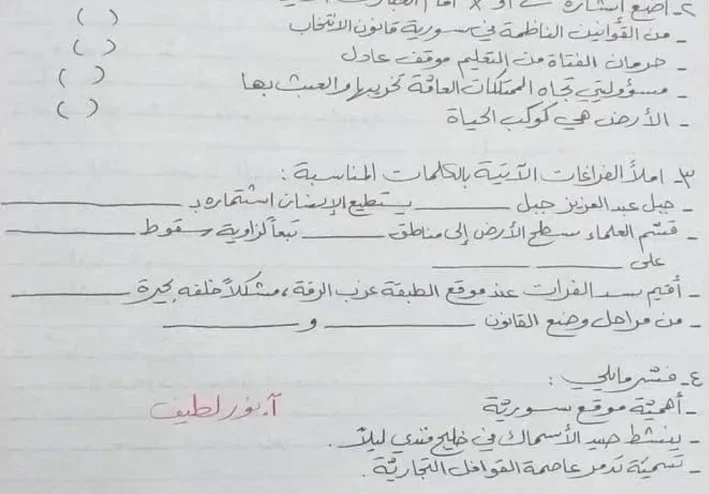 ٢- أضع إشارة ✓ أو × أمام
- من القوانين الناظمة في سورية قانون الانتخاب ( )
- حرمان الفتاة من التعليم موقف عادل ( )
- مسؤوليتي تجاه الممتلكات العامّة تخريبها والعبث بها ( )
- الأرض هي كوكب الحياة ( )
٣- املأ الفراغات الآتية بالكلمات المناسبة :
- جبل عبد العزيز جبل ______ يستطيع الإنسان استثماره بـ ______
- قسّم العلماء سطح الأرض إلى مناطق ______ تبعاً لزاوية سقوط ______
على ______ ______
- أقيم سد الفرات عند موقع الطبقة غرب الرقة، مشكلاً خلفه بحيرة ______
- من مراحل وضع القانون ______ و ______
٤- فسّر مايلي :
- أهميّة موقع سوريّة
آ. نور لطيف
- ينشط صيد الأسماك في خليج فندي ليلاً.
- تسميّة تدمر عاصمة القوافل التجاريّة.